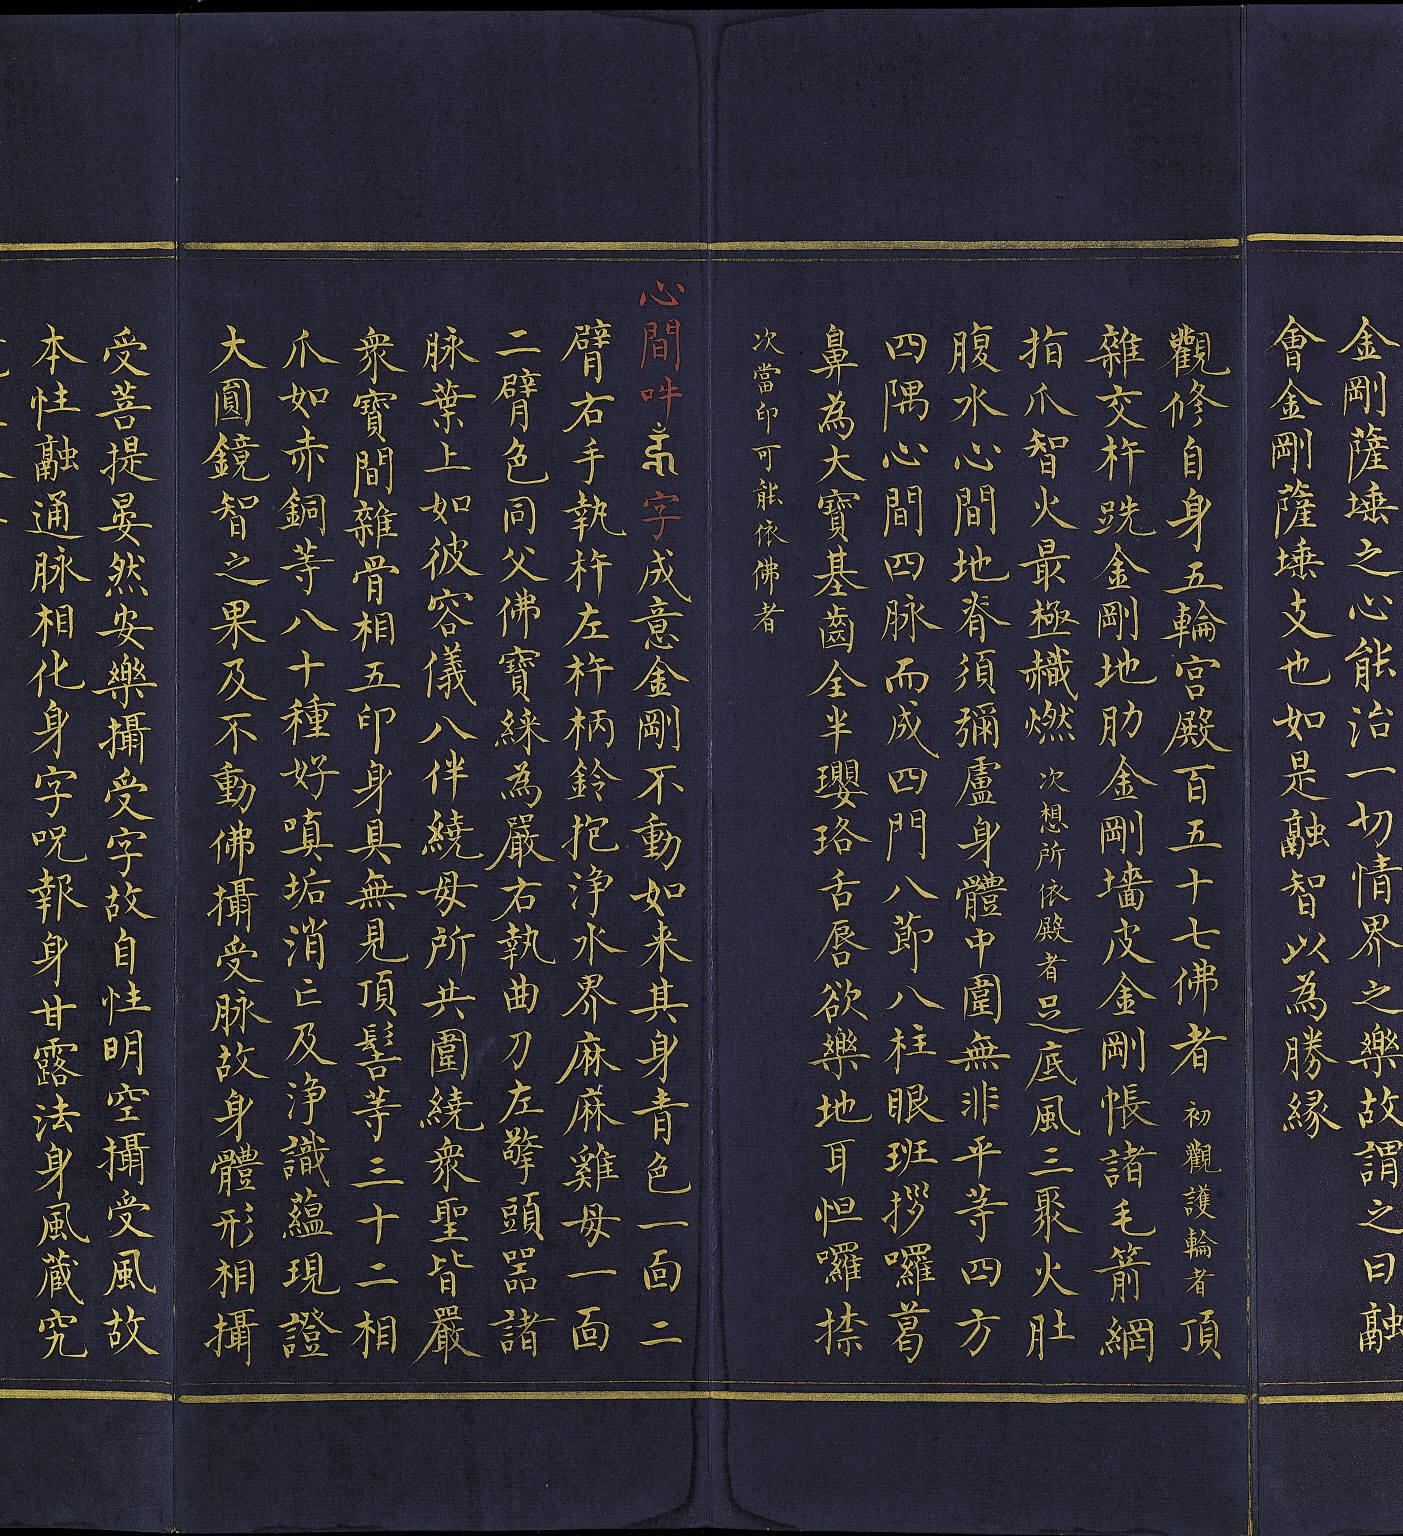 金剛薩埵之心能治一切情界之樂故謂之曰融
會金剛薩埵支也如是融智以為勝緣
觀修自身五輪宮殿百五十七佛者初觀護輪者頂
雜交杵跣金剛地肋金剛墻皮金剛帳諸毛箭網
指爪智火最極熾燃次想所依殿者足底風三聚火肚
腹水心間地脊須彌盧身體中圍無非平等四方
四隅心間四脉而成四門八節八柱眼班拶囉葛
鼻為大寶基齒全半瓔珞舌唇欲樂地耳怛囉捺
次當印可能依佛者
心間吽字成意金剛不動如来其身青色一面二
臂右手執杵左杵柄鈴抱淨水界麻麻雞母一面
二臂色同父佛寶綵為嚴右執曲刀左擎頭器諸
脉葉上如彼容儀八伴繞母所共圍繞衆聖皆嚴
衆寶間雜骨相五印身具無見頂髻等三十二相
爪如赤銅等八十種好嗔垢消亡及淨識蘊現證
大圓鏡智之果及不動佛攝受脉故身體形相攝
受菩提晏然安樂攝受字故自性明空攝受風故
本性融通脉相化身字呪報身甘露法身風蔵究